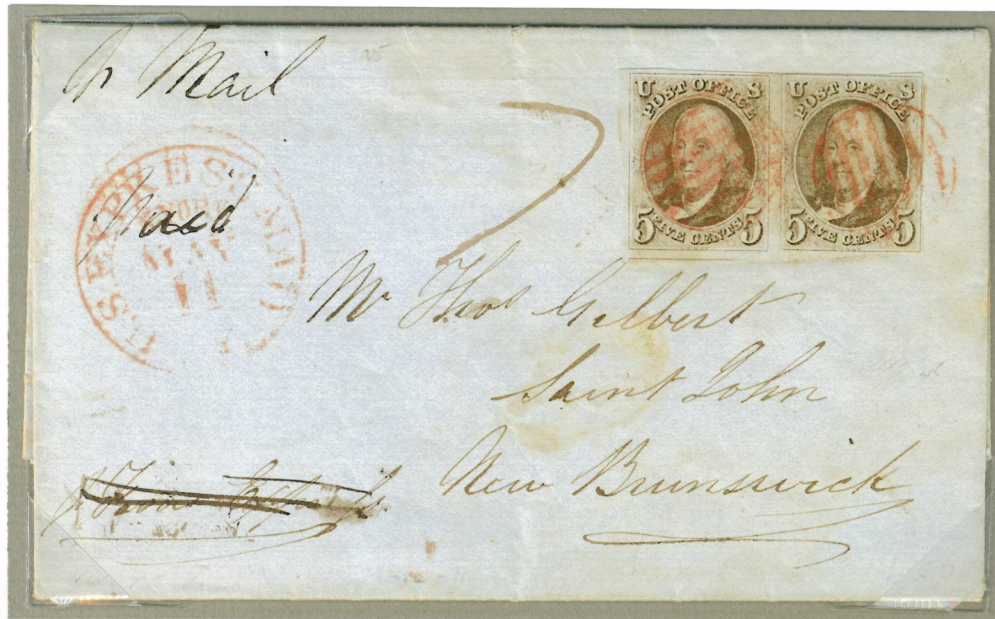 Mail
U S
POST OFFICE
5 5
FIVE CENTS
U S
POST OFFICE
5 5
FIVE CENTS
U.S. EXPRESS MAIL
MAY
11
Paid
7
Mr Thos Gilbert
Saint John
New Brunswick